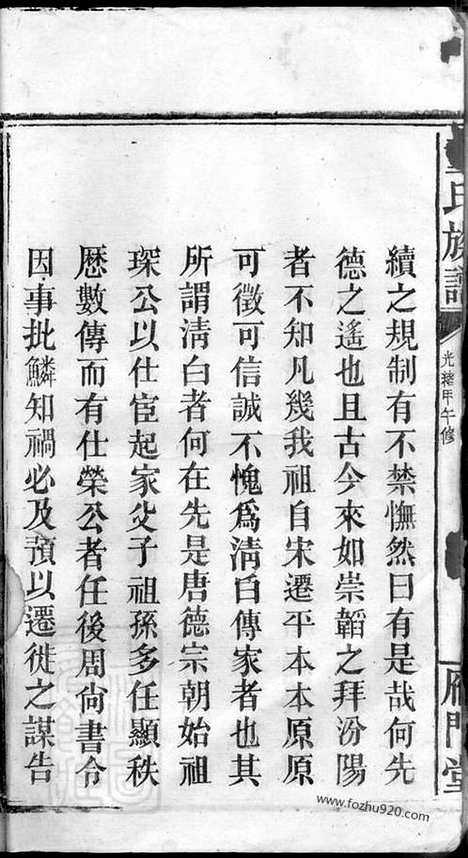 氏族譜
光緒甲午修
雁門堂
續之規制有不禁憮然曰有是哉何先
德之遙也且古今來如崇韜之拜汾陽
者不知凡幾我祖自宋遷平本本原原
可徵可信誠不愧爲清白傳家者也其
所謂清白者何在先是唐德宗朝始祖
琛公以仕宦起家父子祖孫多任顯秩
歷數傳而有仕榮公者任後周尚書令
因事批鱗知禍必及預以遷徙之謀告
www.fozhu920.com